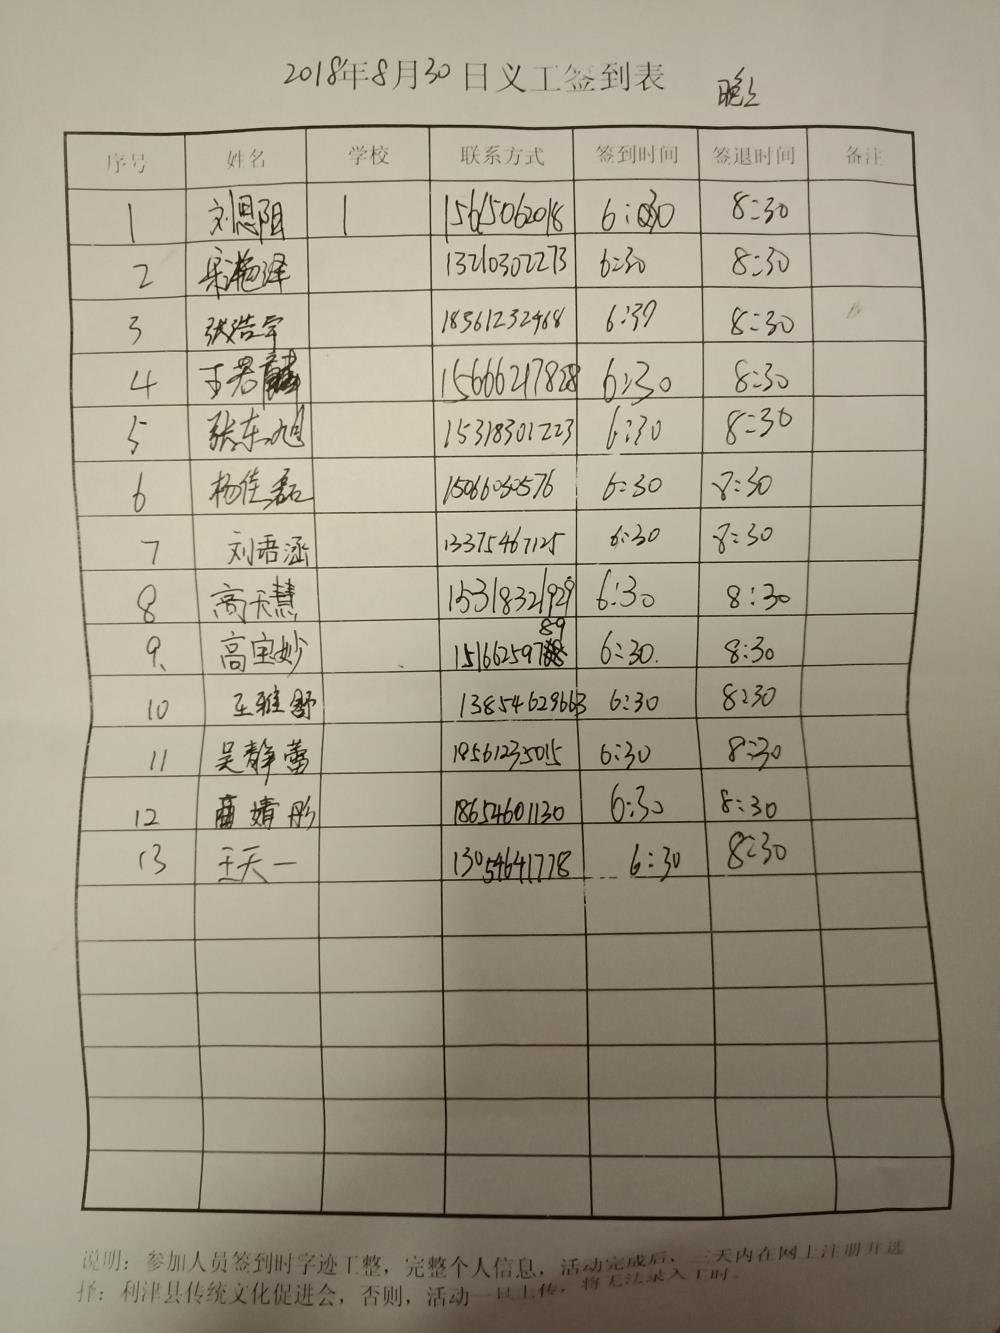 2018年8月30日义工签到表 晚上
序号 姓名 学校 联系方式 签到时间 签退时间 备注
1 刘恩阳 15615062018 6:30 8:30
2 宋艳泽 13210302273 6:30 8:30
3 张浩宇 18561232468 6:37 8:30
4 王君麟 15666217828 6:30 8:30
5 张东旭 15318301223 6:30 8:30
6 杨佳磊 15066030576 6:30 8:30
7 刘语涵 13375467125 6:30 8:30
8 高天慧 15318321929 6:30 8:30
9、 高宝妙 15166259789 6:30 8:30
10 王雅舒 13854629663 6:30 8:30
11 吴静蕾 18561235015 6:30 8:30
12 婧彤 18654601130 6:30 8:30
13 王天一 13054641778 6:30 8:30
说明：参加人员签到时字迹工整，完整个人信息，活动完成后，三天内在网上注册并选
择：利津县传统文化促进会，否则，活动一旦上传，将无法录入工时。